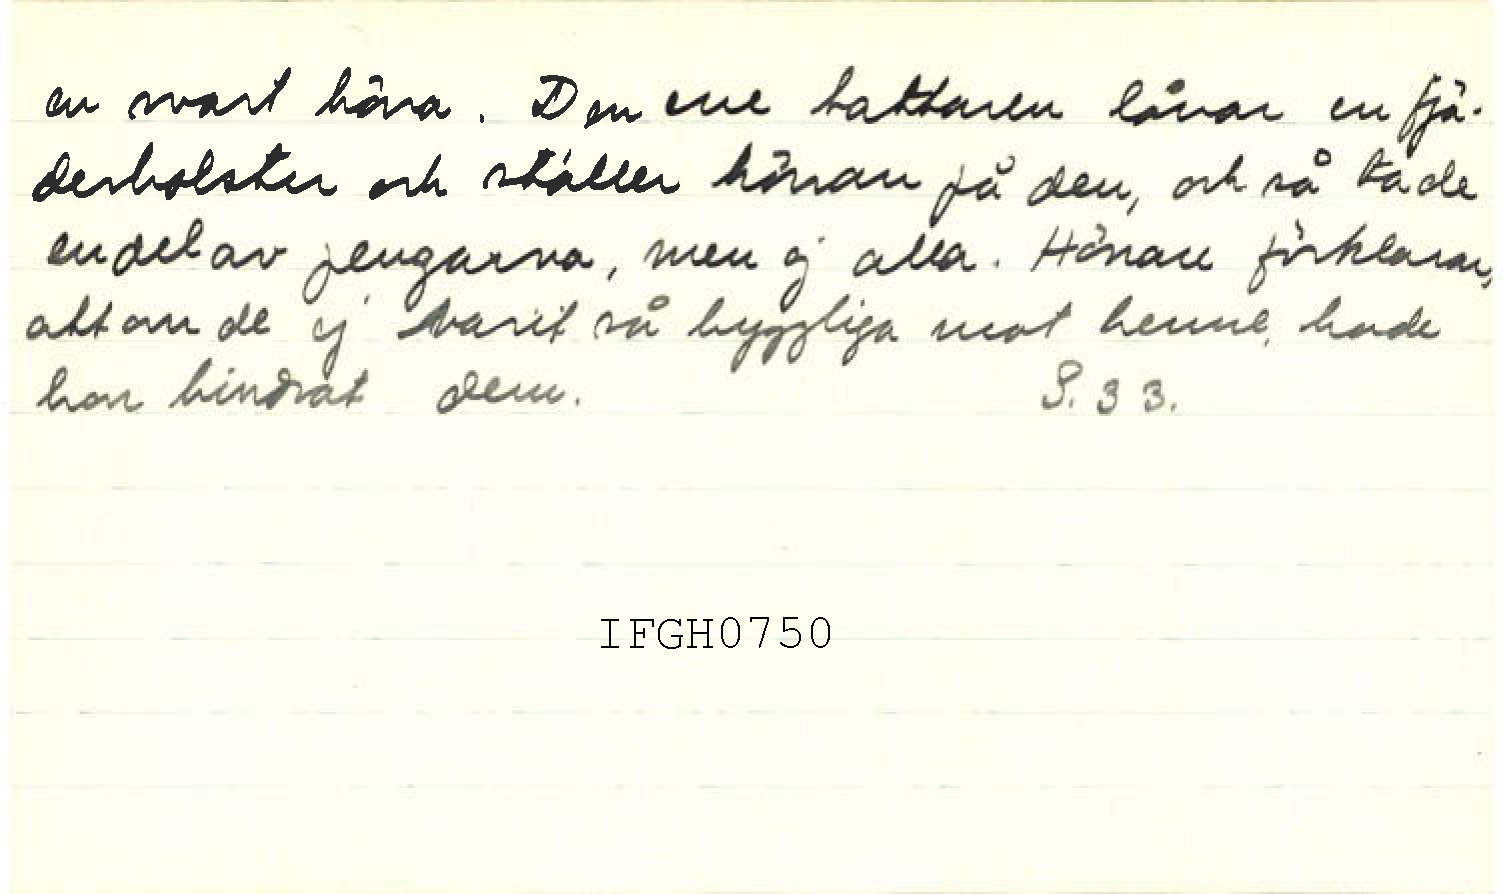 en svart höna. Den ene tattaren låvar en fjä-
derbolster och ställer hönan på den, och så tade
en del av pengarna, men ej alla. Hönan förklarar,
att om de ej varit så hyggliga mot henne, hade
hon hindrat dem. S. 33.
IFGH0750